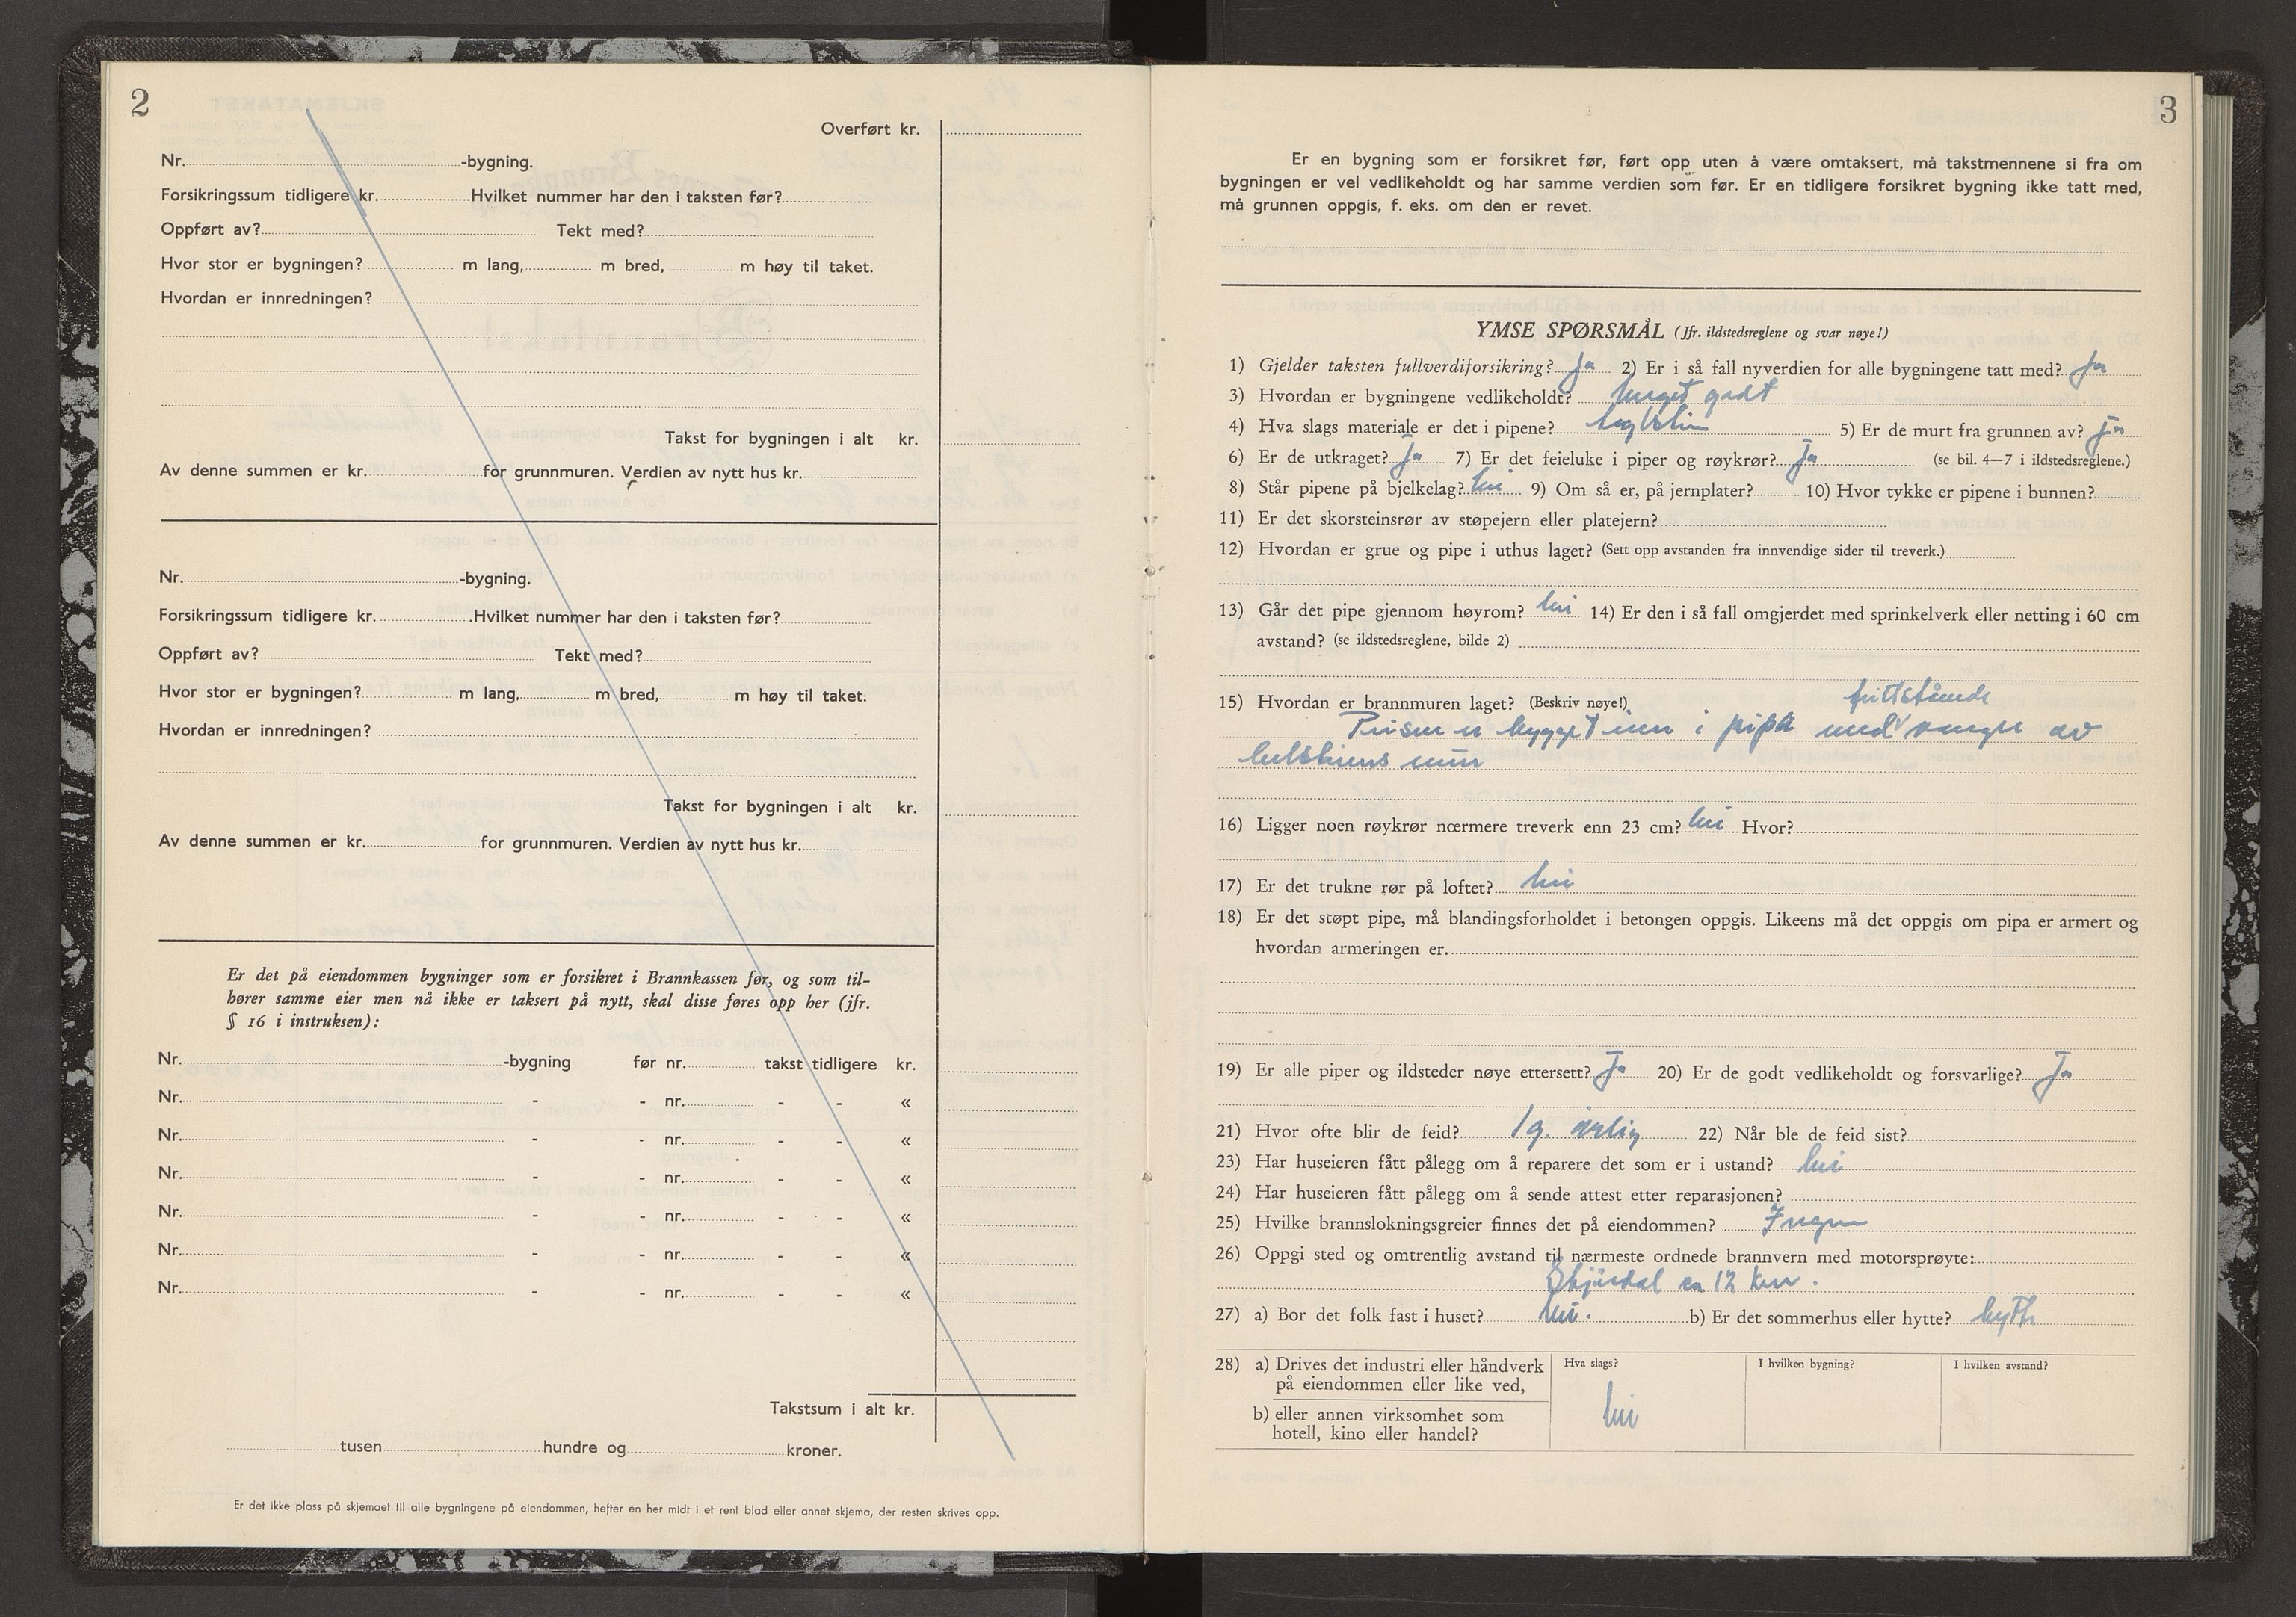 2
Overført kr.
Nr. -bygning.
Forsikringssum tidligere kr. Hvilket nummer har den i taksten før?
Oppført av? Tekt med?
Hvor stor er bygningen? m lang, m bred, m høy til taket.
Hvordan er innredningen?
Takst for bygningen i alt kr.
Av denne summen er kr. for grunnmuren. Verdien av nytt hus kr.
Nr. -bygning.
Forsikringssum tidligere kr. Hvilket nummer har den i taksten før?
Oppført av? Tekt med?
Hvor stor er bygningen? m lang, m bred, m høy til taket.
Hvordan er innredningen?
Takst for bygningen i alt kr.
Av denne summen er kr. for grunnmuren. Verdien av nytt hus kr.
Er det på eiendommen bygninger som er forsikret i Brannkassen før, og som til-
hører samme eier men nå ikke er taksert på nytt, skal disse føres opp her (jfr.
§ 16 i instruksen):
Nr. -bygning før nr. takst tidligere kr.
Nr. - - nr. - - «
Nr. - - nr. - - «
Nr. - - nr. - - «
Nr. - - nr. - - «
Nr. - - nr. - - «
Nr. - - nr. - - «
Takstsum i alt kr.
tusen hundre og kroner.
Er det ikke plass på skjemaet til alle bygningene på eiendommen, hefter en her midt i et rent blad eller annet skjema, der resten skrives opp.
3
Er en bygning som er forsikret før, ført opp uten å være omtaksert, må takstmennene si fra om
bygningen er vel vedlikeholdt og har samme verdien som før. Er en tidligere forsikret bygning ikke tatt med,
må grunnen oppgis, f. eks. om den er revet.
YMSE SPØRSMÅL (Jfr. ildstedsreglene og svar nøye!)
1) Gjelder taksten fullverdiforsikring? Ja 2) Er i så fall nyverdien for alle bygningene tatt med? Ja
3) Hvordan er bygningene vedlikeholdt? meget godt
4) Hva slags materiale er det i pipene? teglstein 5) Er de murt fra grunnen av? Ja
6) Er de utkraget? Ja 7) Er det feieluke i piper og røykrør? Ja (se bil. 4—7 i ildstedsreglene.)
8) Står pipene på bjelkelag? Nei 9) Om så er, på jernplater? 10) Hvor tykke er pipene i bunnen?
11) Er det skorsteinsrør av støpejern eller platejern?
12) Hvordan er grue og pipe i uthus laget? (Sett opp avstanden fra innvendige sider til treverk.)
13) Går det pipe gjennom høyrom? Nei 14) Er den i så fall omgjerdet med sprinkelverk eller netting i 60 cm
avstand? (se ildstedsreglene, bilde 2)
15) Hvordan er brannmuren laget? (Beskriv nøye!) frittstående
Peisen er bygget inn i pipa med vanger av
helsteins mur
16) Ligger noen røykrør nærmere treverk enn 23 cm? Nei Hvor?
17) Er det trukne rør på loftet? Nei
18) Er det støpt pipe, må blandingsforholdet i betongen oppgis. Likeens må det oppgis om pipa er armert og
hvordan armeringen er.
19) Er alle piper og ildsteder nøye ettersett? Ja 20) Er de godt vedlikeholdt og forsvarlige? Ja
21) Hvor ofte blir de feid? 1 g. årlig 22) Når ble de feid sist?
23) Har huseieren fått pålegg om å reparere det som er i ustand? Nei
24) Har huseieren fått pålegg om å sende attest etter reparasjonen?
25) Hvilke brannslokningsgreier finnes det på eiendommen? Ingen
26) Oppgi sted og omtrentlig avstand til nærmeste ordnede brannvern med motorsprøyte:
ca 12 km.
27) a) Bor det folk fast i huset? Nei. b) Er det sommerhus eller hytte? hytte
28) a) Drives det industri eller håndverk Hva slags? I hvilken bygning? I hvilken avstand?
på eiendommen eller like ved,
b) eller annen virksomhet som Nei
hotell, kino eller handel?